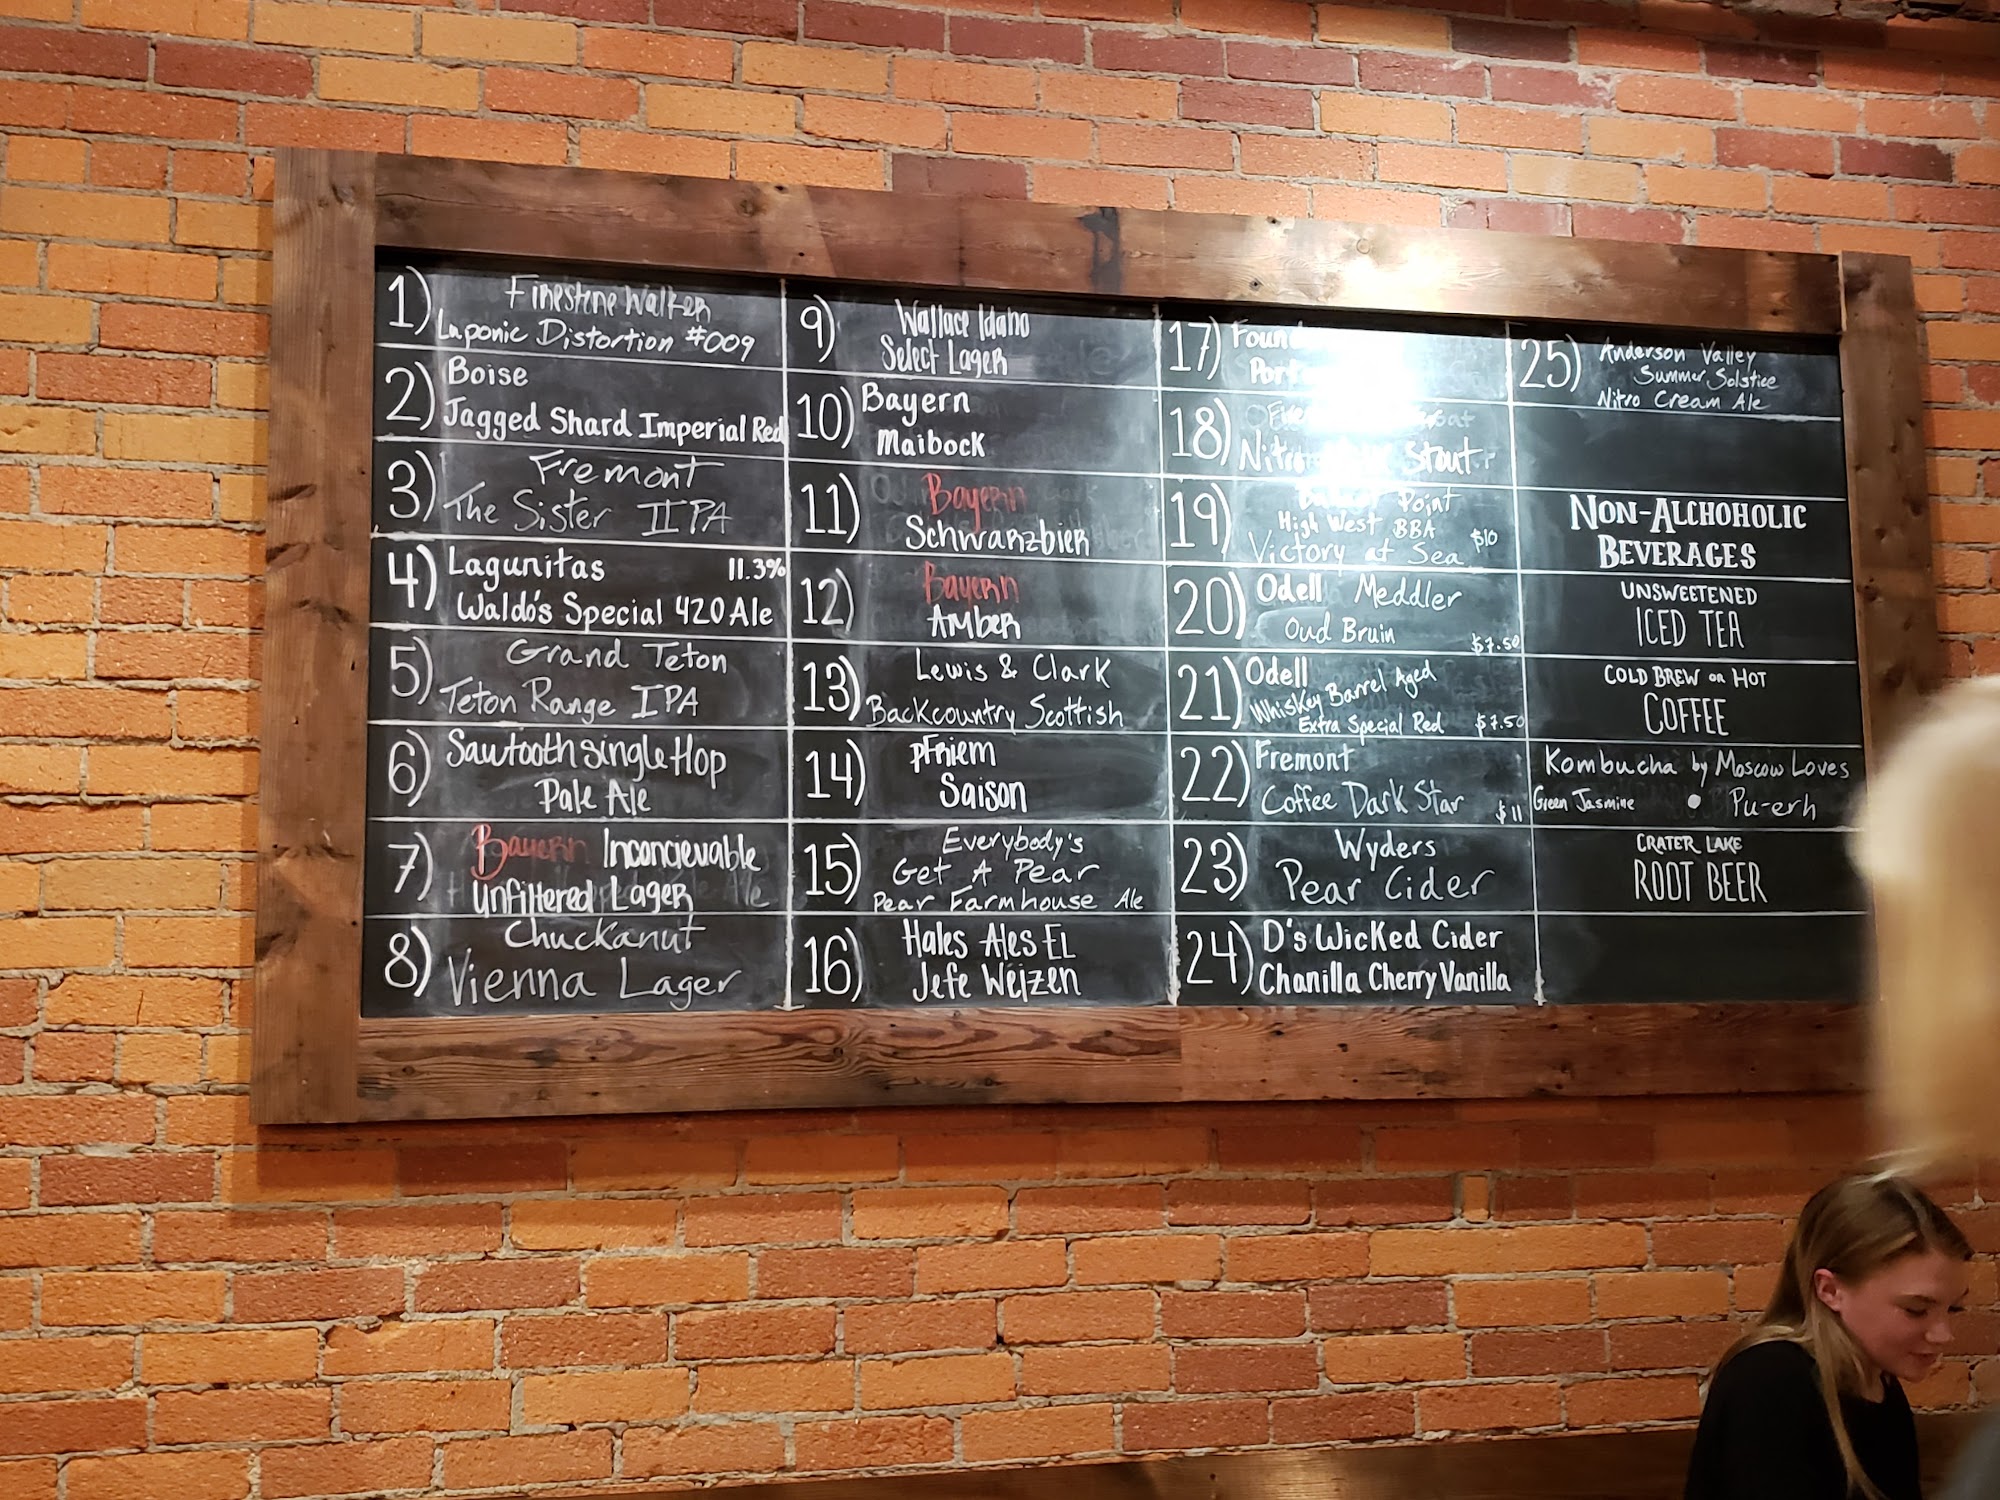 1) Firestone Walker
Luponic Distortion #009
2) Boise
Jagged Shard Imperial Red
3) Fremont
The Sister IIPA
4) Lagunitas 11.3%
Waldo's Special 420 Ale
5) Grand Teton
Teton Range IPA
6) Sawtooth Single Hop
Pale Ale
7) Bayern Inconcievable
Unfiltered Lager
8) Chuckanut
Vienna Lager
9) Wallace Idaho
Select Lager
10) Bayern
Maibock
11) Bayern
Schwarzbier
12) Bayern
Amber
13) Lewis & Clark
Backcountry Scottish
14) pFriem
Saison
15) Everybody's
Get A Pear
Pear Farmhouse Ale
16) Hales Ales EL
Jefe Weizen
17)
18)
Stout
19) Point
High West BBA
Victory at Sea $10
20) Odell Meddler
Oud Bruin $7.50
21) Odell
Whiskey Barrel Aged
Extra Special Red $7.50
22) Fremont
Coffee Dark Star $11
23) Wyders
Pear Cider
24) D's Wicked Cider
Chanilla Cherry Vanilla
25) Anderson Valley
Summer Solstice
Nitro Cream Ale
NON-ALCHOHOLIC
BEVERAGES
UNSWEETENED
ICED TEA
COLD BREW OR HOT
COFFEE
Kombucha by Moscow Loves
Green Jasmine • Pu-erh
CRATER LAKE
ROOT BEER